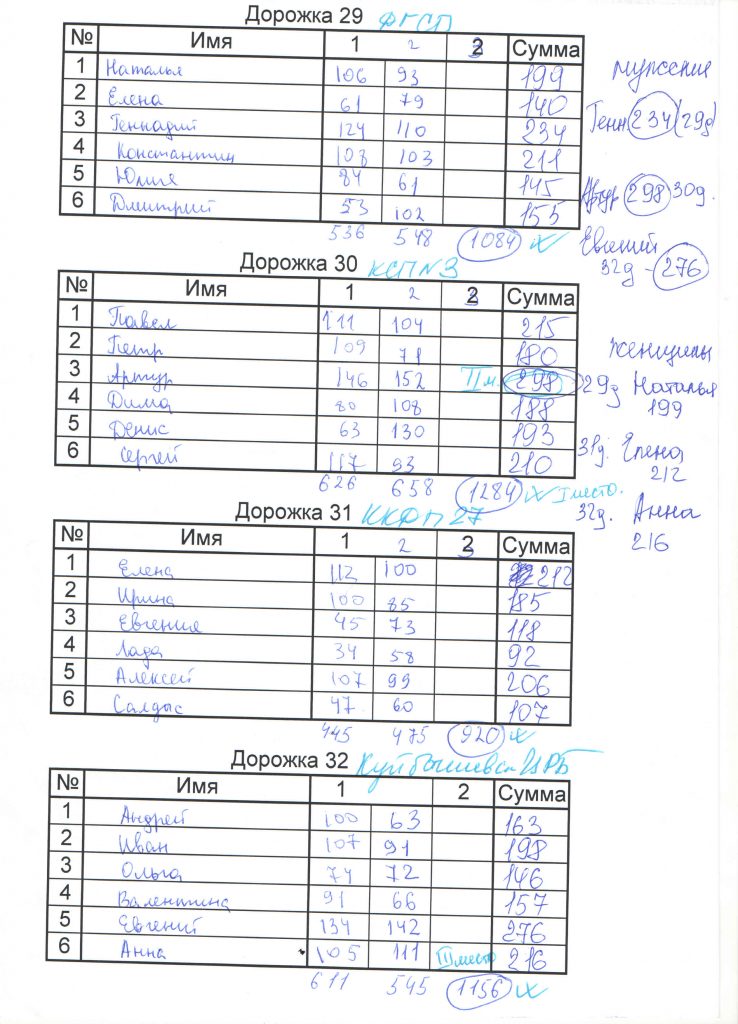 Дорожка 29 ФГСП
№ Имя 1 2 3 Сумма
1 Наталья 106 93 199
2 Елена 61 79 140
3 Геннадий 124 110 234
4 Константин 108 103 211
5 Юлия 84 61 145
6 Дмитрий 53 102 155
536 548 1084
Дорожка 30 КСП №3
№ Имя 1 2 3 Сумма
1 Павел 111 104 215
2 Петр 109 71 180
3 Артур 146 152 II м. 298
4 Дима 80 108 188
5 Денис 63 130 193
6 Сергей 117 93 210
626 658 1284 I место.
Дорожка 31 ККДП 27
№ Имя 1 2 3 Сумма
1 Елена 112 100 212
2 Ирина 100 85 185
3 Евгения 45 73 118
4 Лада 34 58 92
5 Алексей 107 99 206
6 Салдыс 47 60 107
445 475 920
Дорожка 32 Куйбышевск ЦРБ
№ Имя 1 2 Сумма
1 Андрей 100 63 163
2 Иван 107 91 198
3 Ольга 74 72 146
4 Валентина 91 66 157
5 Евгений 134 142 276
6 Анна 105 111 III место 216
611 545 1156
мужские
Генн 234 (29д)
Артур 298 30д.
Евгений
32д - 276
женщины
29д Наталья
199
31д. Елена
212
32д. Анна
216